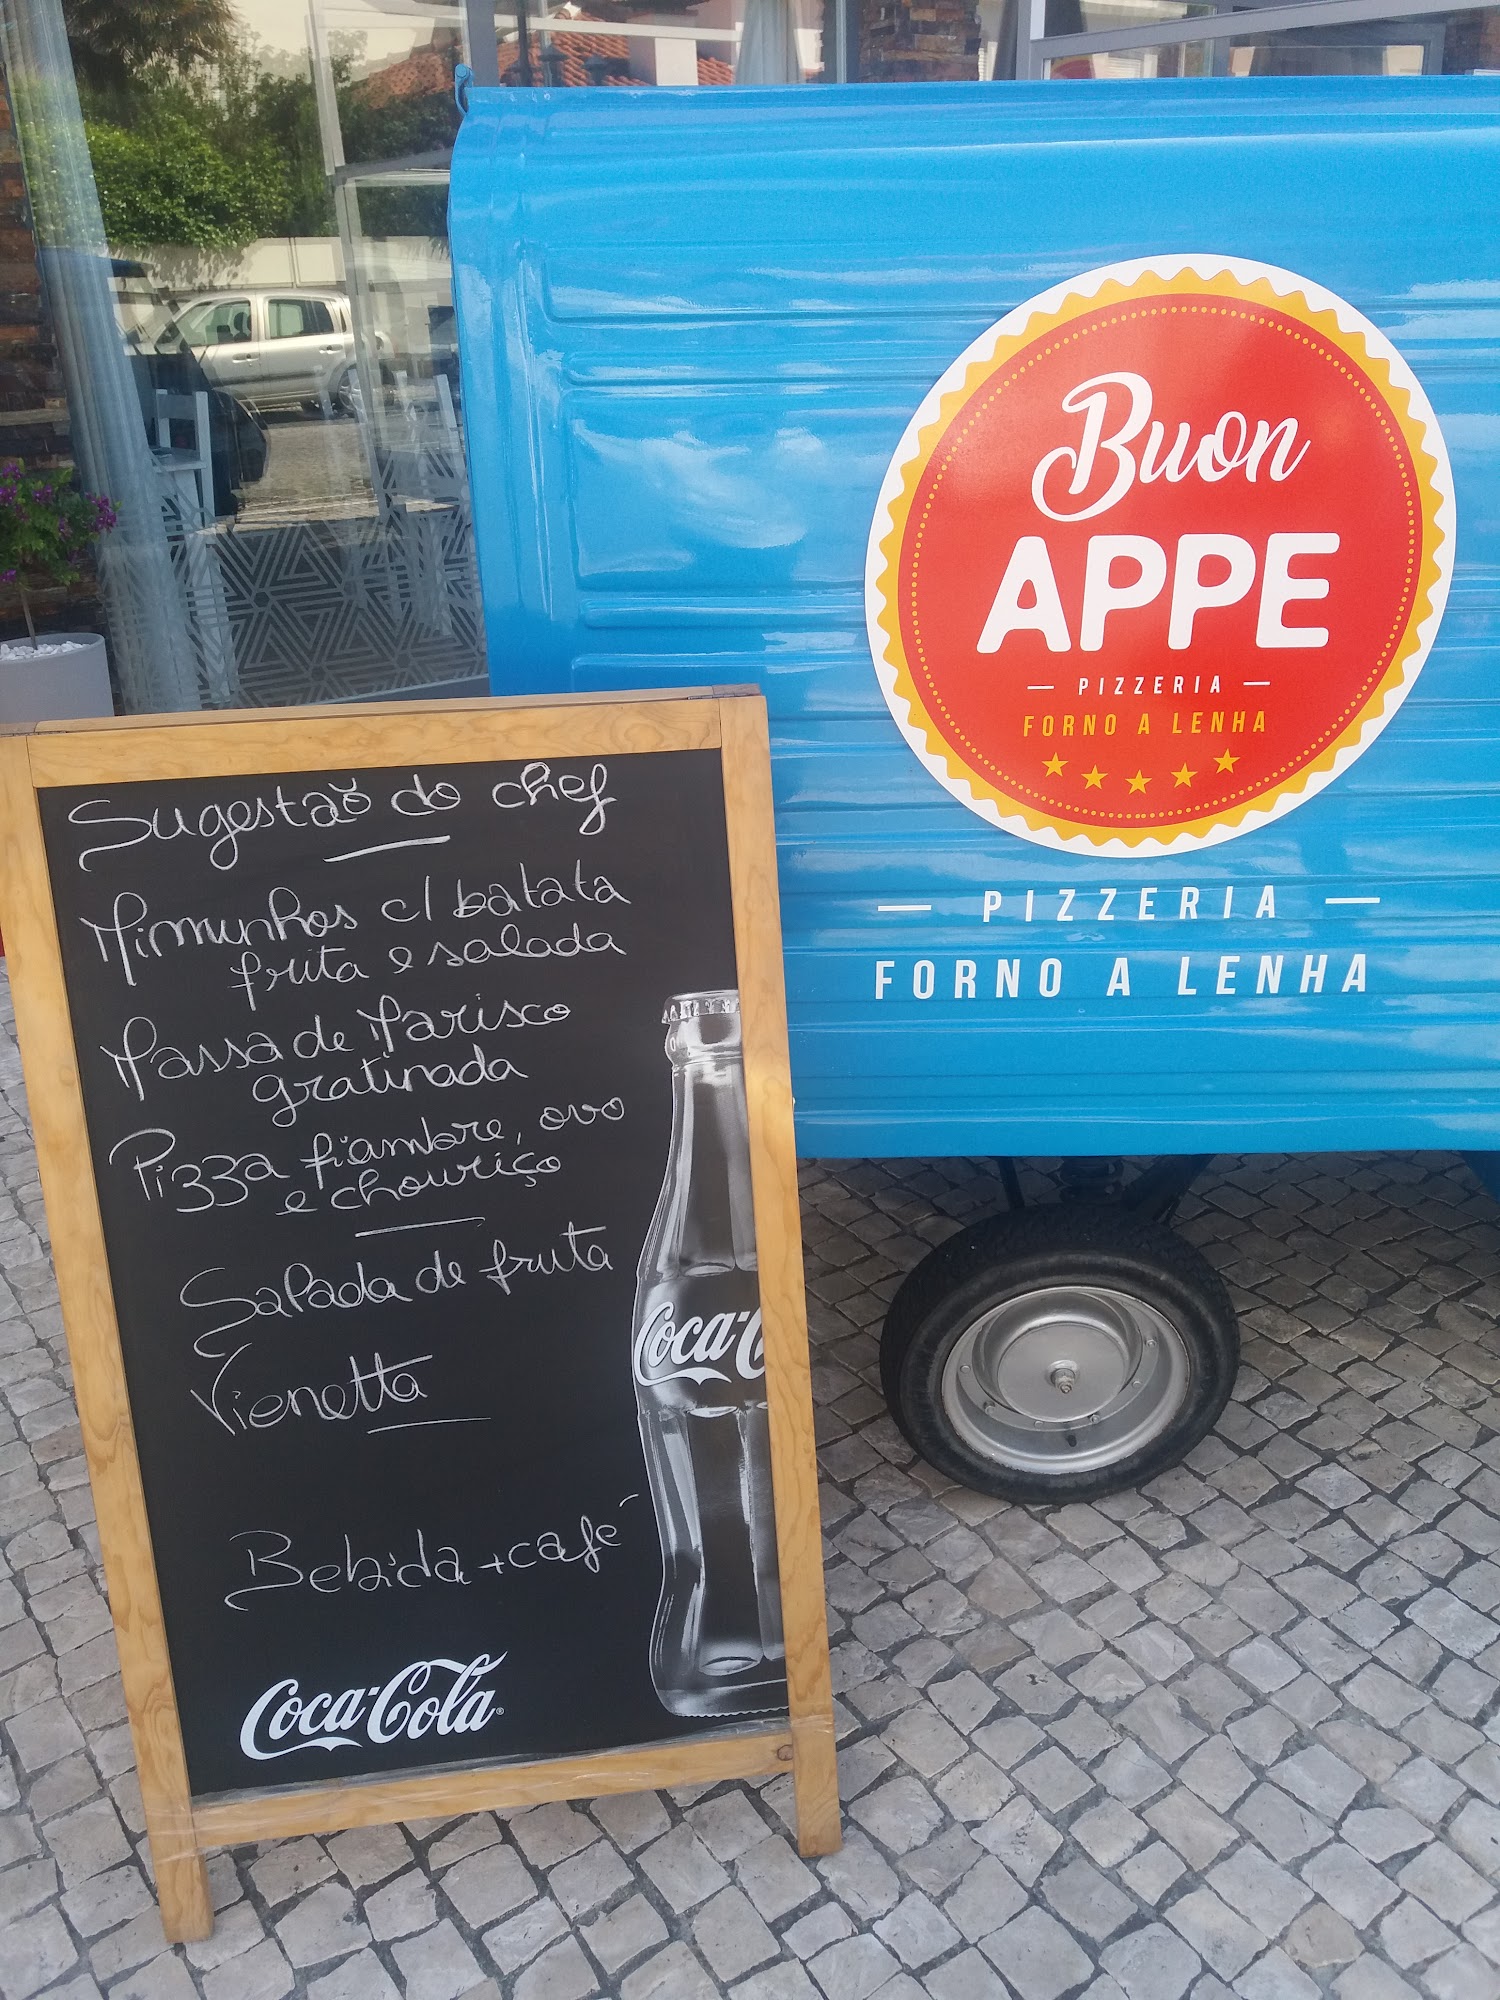 Sugestão do chef
Mimunhos c/ batata
frita e salada
Massa de Marisco
gratinada
Pizza fiambre, ovo
e chouriço
Salada de fruta
Vienetta
Bebida + café
Coca-Cola
Coca-C
Buon
APPE
PIZZERIA
FORNO A LENHA
PIZZERIA
FORNO A LENHA